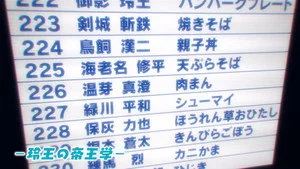 222 御影 玲王 ハンバーグプレート
223 剣城 斬鉄 焼きそば
224 鳥飼 漢二 親子丼
225 海老名 修平 天ぷらそば
226 温芽 真澄 肉まん
227 緑川 平和 シューマイ
228 保灰 力也 ほうれん草おひたし
229 蒼太 きんぴらごぼう
230 練馬 烈 カニかま
ひじき
-玲王の帝王学-